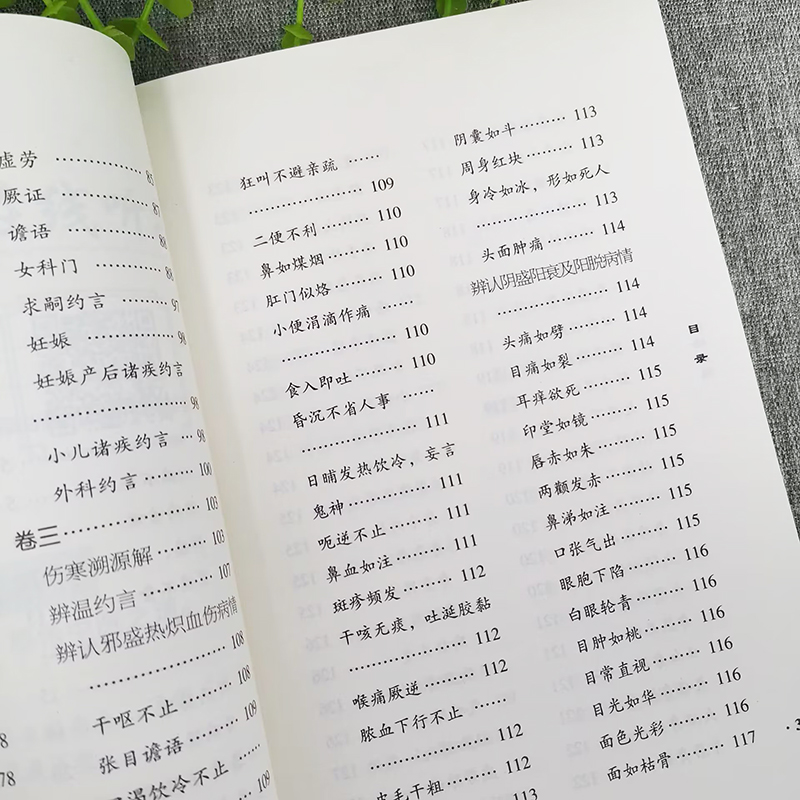 虚劳 ……… 85
厥证 ……… 87
谵语 ……… 88
女科门 ……… 88
求嗣约言 ……… 97
妊娠 ……… 98
妊娠产后诸疾约言
……… 98
小儿诸疾约言 …… 98
外科约言 ……… 100
卷三 ……… 103
伤寒溯源解 ……… 103
辨温约言 ……… 107
辨认邪盛热炽血伤病情
……… 108
干呕不止 ……… 108
张目谵语 ……… 109
渴饮冷不止
……… 109
8
78
狂叫不避亲疏 ……
……… 109
二便不利 ……… 110
鼻如煤烟 ……… 110
肛门似烙 ……… 110
小便涓滴作痛 ……
……… 110
食入即吐 ……… 110
昏沉不省人事 ……
……… 111
日晡发热饮冷，妄言
鬼神 ……… 111
呃逆不止 ……… 111
鼻血如注 ……… 111
斑疹频发 ……… 112
干咳无痰，吐涎胶黏
……… 112
喉痛厥逆 ……… 112
脓血下行不止 ……
……… 112
皮毛干粗 ……… 112
113
阴囊如斗 ……… 113
周身红块 ……… 113
身冷如冰，形如死人
……… 113
头面肿痛 ……… 114
辨认阴盛阳衰及阳脱病情
……… 114
头痛如劈 ……… 114
目痛如裂 ……… 114
耳痒欲死 ……… 115
印堂如镜 ……… 115
唇赤如朱 ……… 115
两颧发赤 ……… 115
鼻涕如注 ……… 115
口张气出 ……… 115
眼胞下陷 ……… 116
白眼轮青 ……… 116
目肿如桃 ……… 116
目常直视 ……… 116
目光如华 ……… 116
面色光彩 ……… 116
面如枯骨 ……… 117
目录
· 3